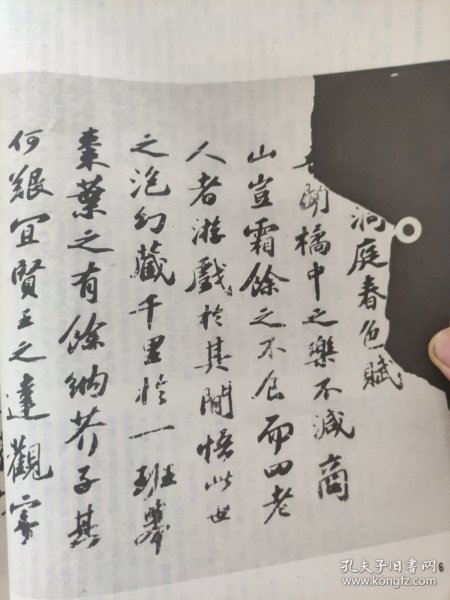 洞庭春色賦
聞橘中之樂不減商
山豈霜餘之不食而四老
人者游戲於其間悟此世
之泡幻藏千里於一班舉
棗葉之有餘納芥子其
何艱宜賢王之達觀寄
6
孔夫子旧书网
www.kongfz.com